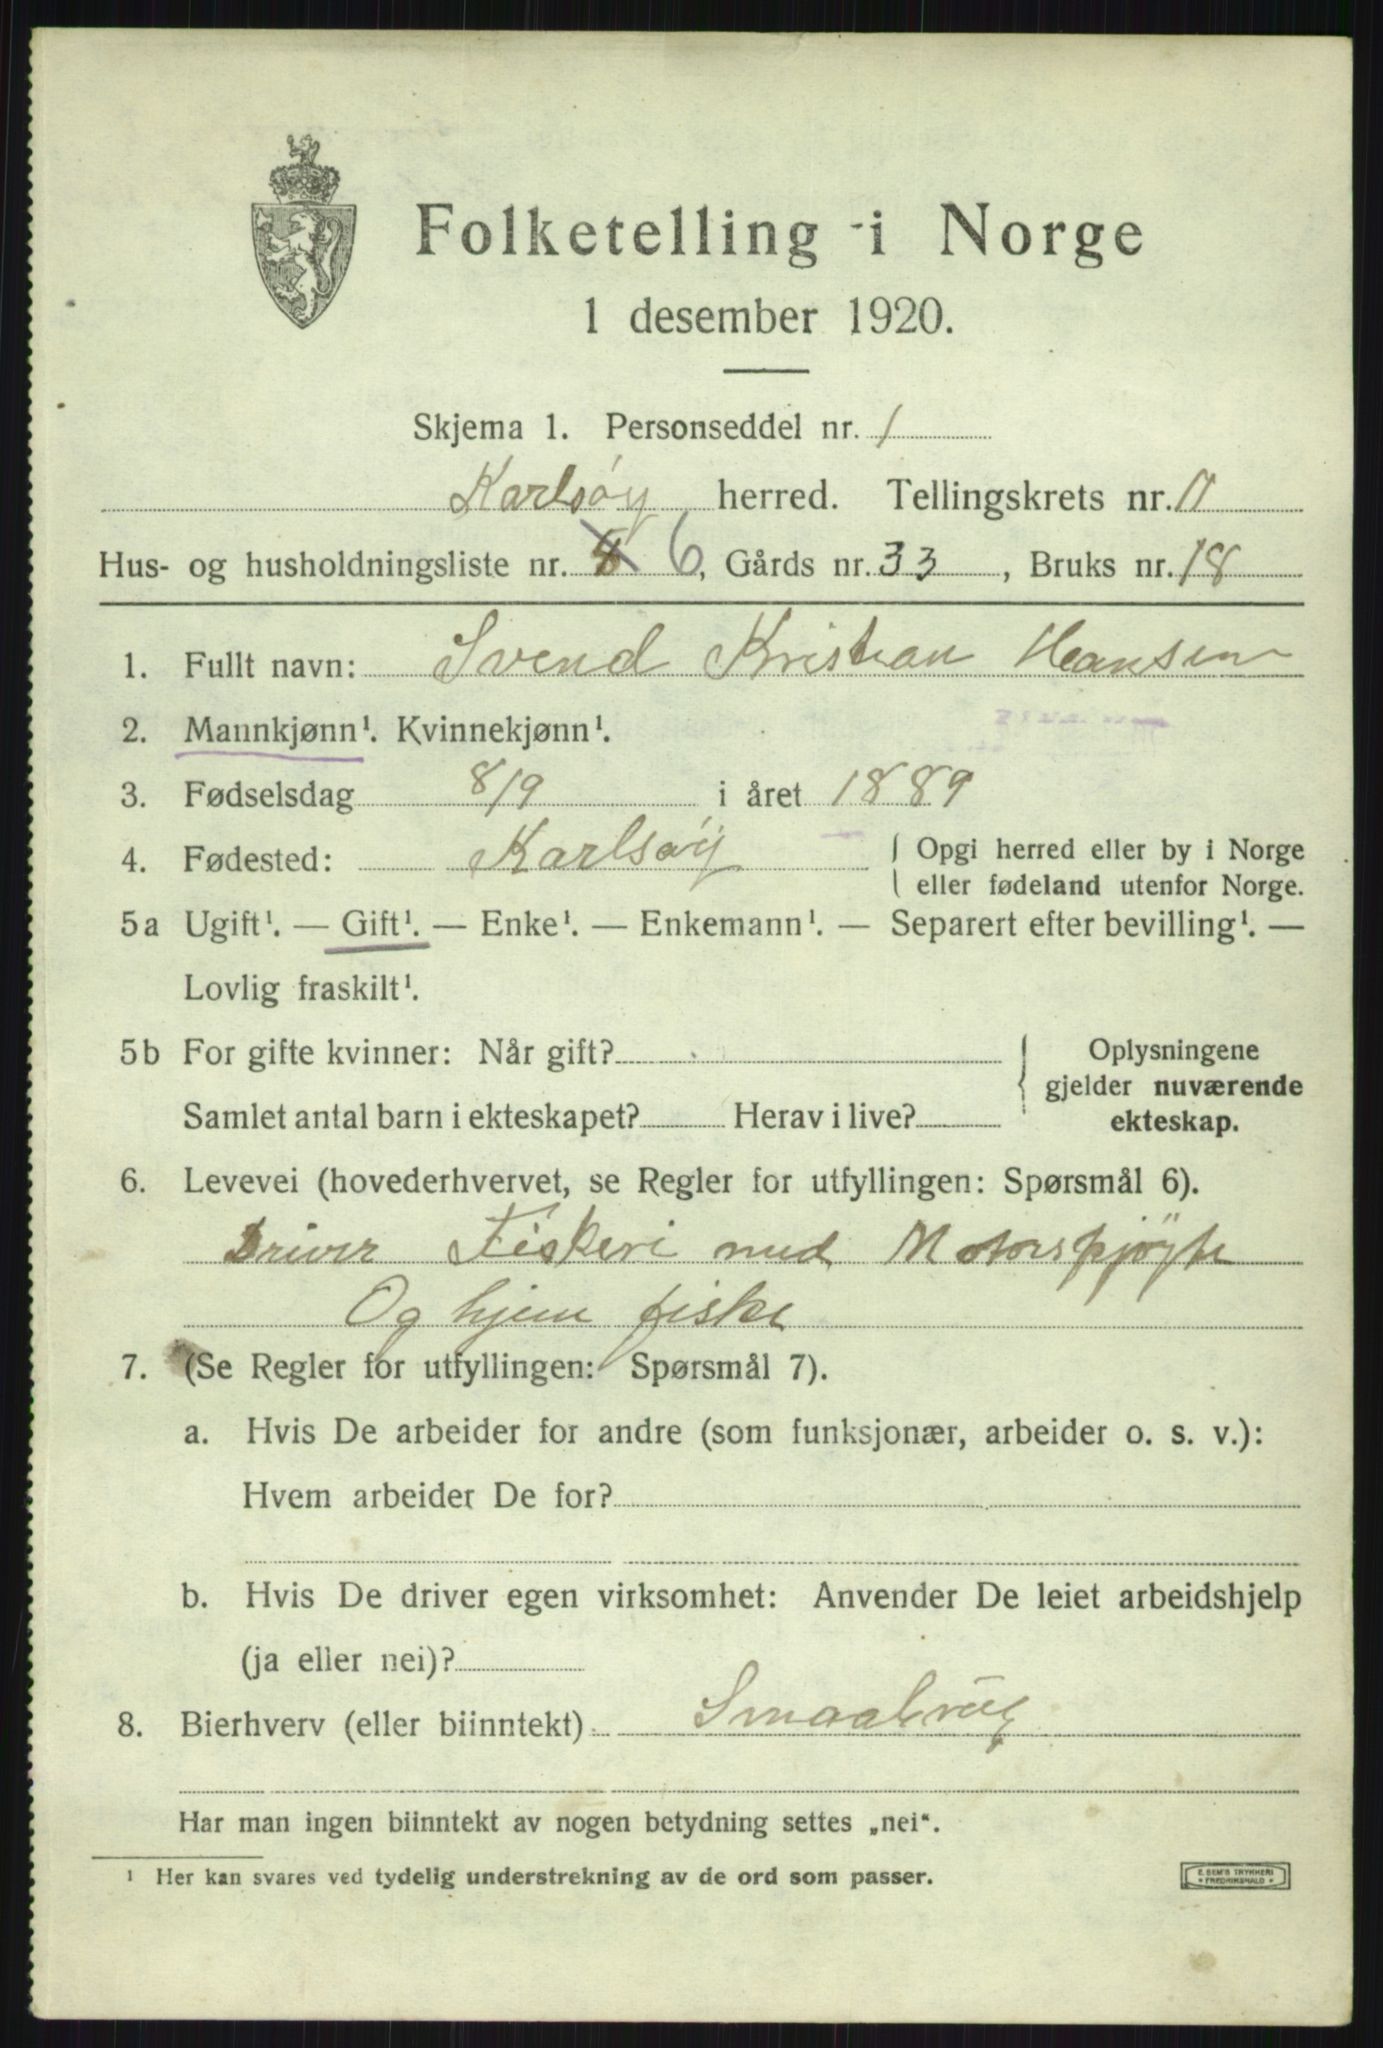 Folketelling i Norge
1 desember 1920.
Skjema 1. Personseddel nr. 1
Karlsøy herred. Tellingskrets nr.
Hus- og husholdningsliste nr. 6, Gårds nr. 33, Bruks nr. 18
1. Fullt navn: Svend Kristian Hansen
2. Mannkjønn¹. Kvinnekjønn¹.
3. Fødselsdag 8/9 i året 1889
4. Fødested: Karlsøy { Opgi herred eller by i Norge
eller fødeland utenfor Norge.
5a Ugift¹. — Gift¹. — Enke¹. — Enkemann¹. — Separert efter bevilling¹. —
Lovlig fraskilt¹.
5b For gifte kvinner: Når gift?
Samlet antal barn i ekteskapet? Herav i live?
{ Oplysningene
gjelder nuværende
ekteskap.
6. Levevei (hovederhvervet, se Regler for utfyllingen: Spørsmål 6).
Driver Fiskeri med
Og hjem fiske
7. (Se Regler for utfyllingen: Spørsmål 7).
a. Hvis De arbeider for andre (som funksjonær, arbeider o. s. v.):
Hvem arbeider De for?
b. Hvis De driver egen virksomhet: Anvender De leiet arbeidshjelp
(ja eller nei)?
8. Bierhverv (eller biinntekt) Smaabrug
Har man ingen biinntekt av nogen betydning settes „nei“.
¹ Her kan svares ved tydelig understrekning av de ord som passer.
E. SEM'S TRYKKERI
• FREDRIKSHALD •